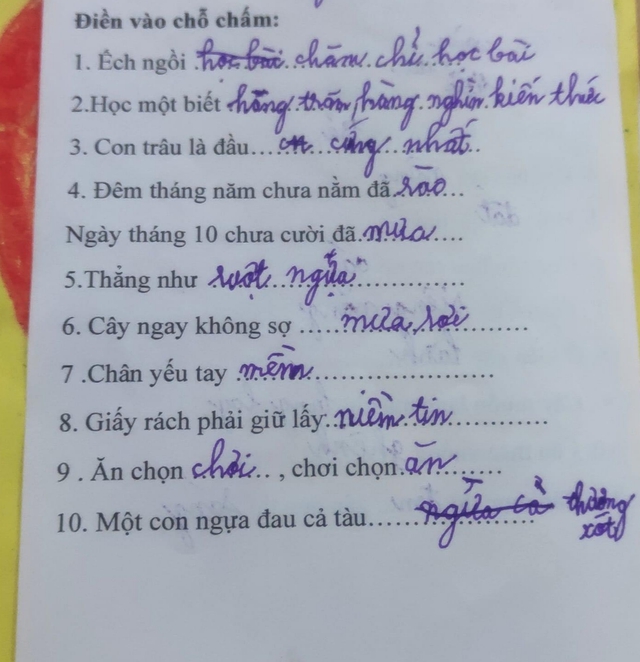 Điền vào chỗ chấm:
1. Ếch ngồi học bài chăm chỉ học bài
2.Học một biết hàng trăm, hàng nghìn kiến thức
3. Con trâu là đầu... cứng nhất..
4. Đêm tháng năm chưa nằm đã rào...
Ngày tháng 10 chưa cười đã.mưa....
5.Thẳng như ruột ngựa..............
6. Cây ngay không sợ .....mưa rơi........
7 .Chân yếu tay mềm.......................
8. Giấy rách phải giữ lấy.niềm tin............
9 . Ăn chọn chơi.. , chơi chọn.ăn.......
10. Một con ngựa đau cả tàu......ngựa cả thương
xót